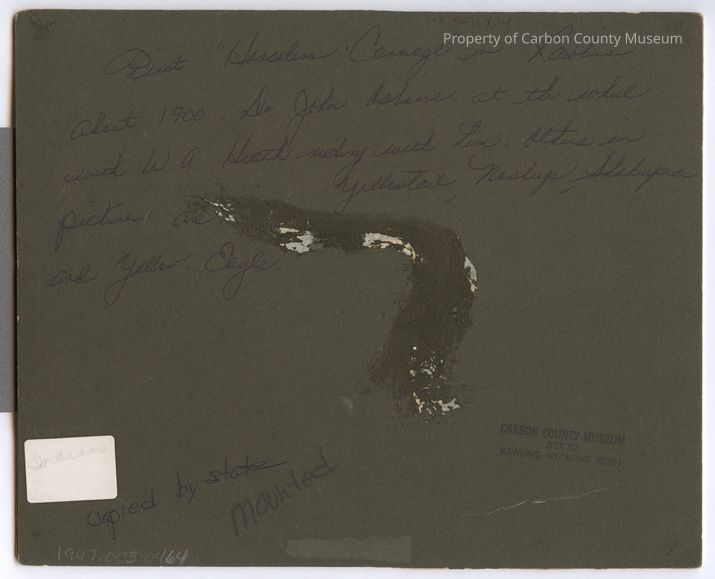 Property of Carbon County Museum
First "Horseless Carriage in Rawlins
about 1900. Dr John Osborne at the wheel
with W. A. Heath riding with him. Others in
picture are Yellowtail, Washup, Shakespear
and Yellow Eagle
CARBON COUNTY MUSEUM
BOX 52
RAWLINS, WYOMING 82301
Indian
copied by state
mounted
1947.003.0464